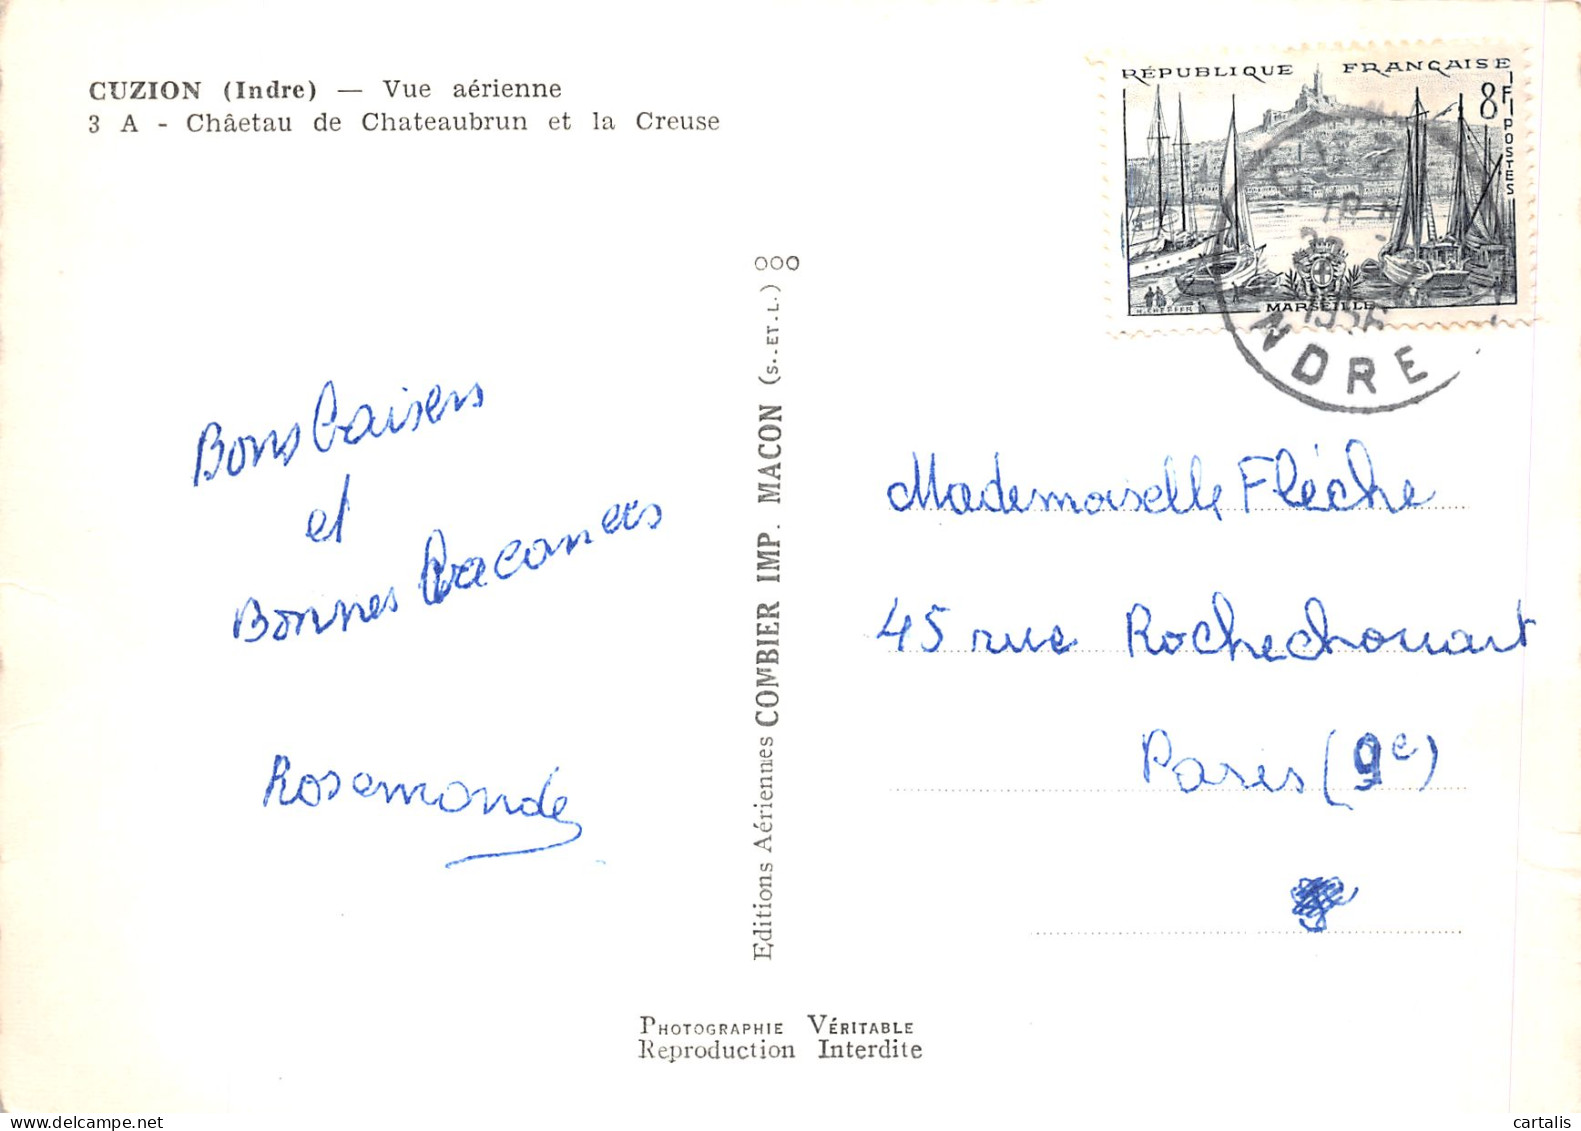 CUZION (Indre) — Vue aérienne
3 A - Châetau de Chateaubrun et la Creuse
RÉPUBLIQUE FRANÇAISE
8F
POSTES
MARSEILLE
1956
INDRE
Bons baisers
et
Bonnes vacances
Rosemonde
Editions Aériennes COMBIER IMP. MACON (S.-ET-L.) 000
Mademoiselle Flèche
45 rue Rochechouart
Paris (9e)
PHOTOGRAPHIE VÉRITABLE
Reproduction Interdite
cartalis